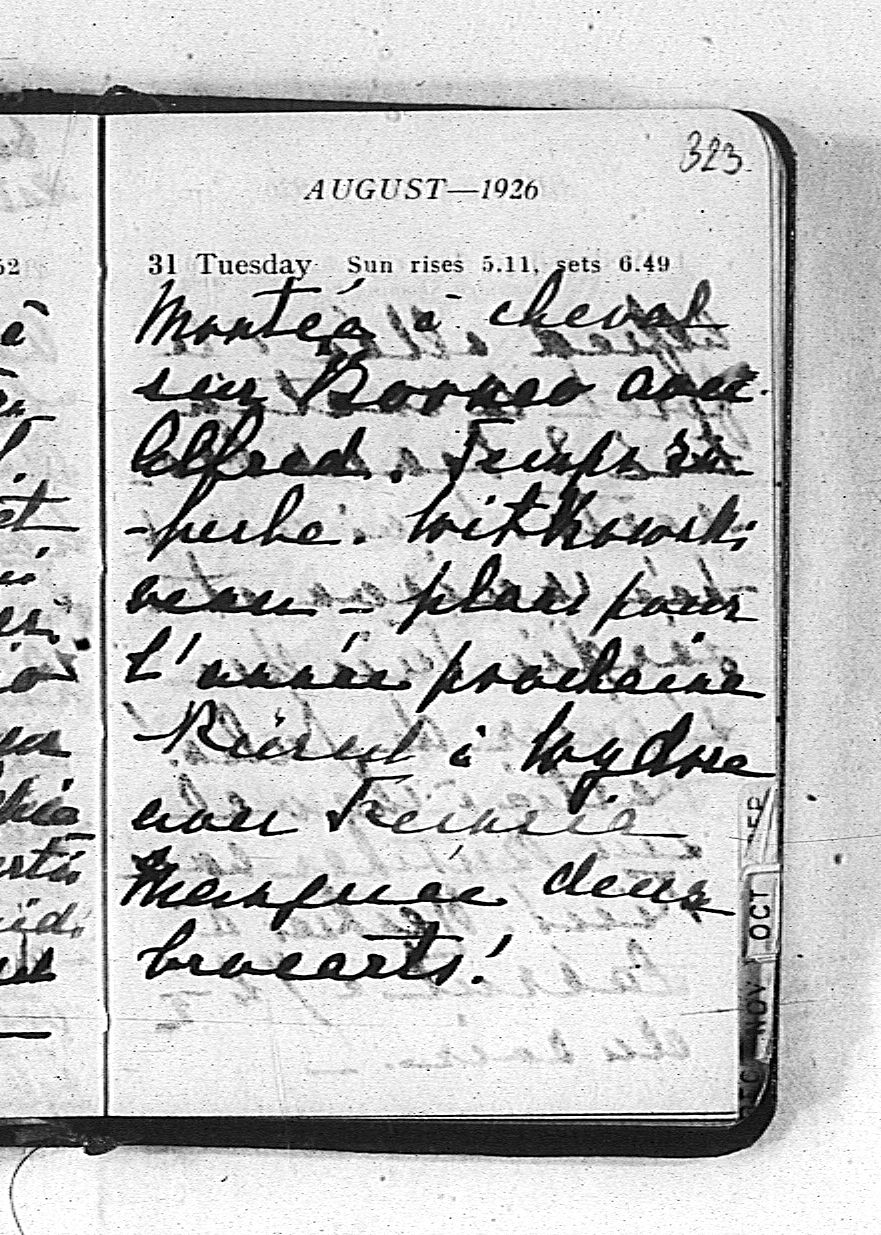 323
AUGUST—1926
31 Tuesday Sun rises 5.11, sets 6.49
Montée à cheval
sur Borneo avec
Alfred. Temps su
-perbe. Witkowski
venu - plans pour
l'année prochaine
à Wydra
avec
Manqué deux
brocarts!
OCT
NOV